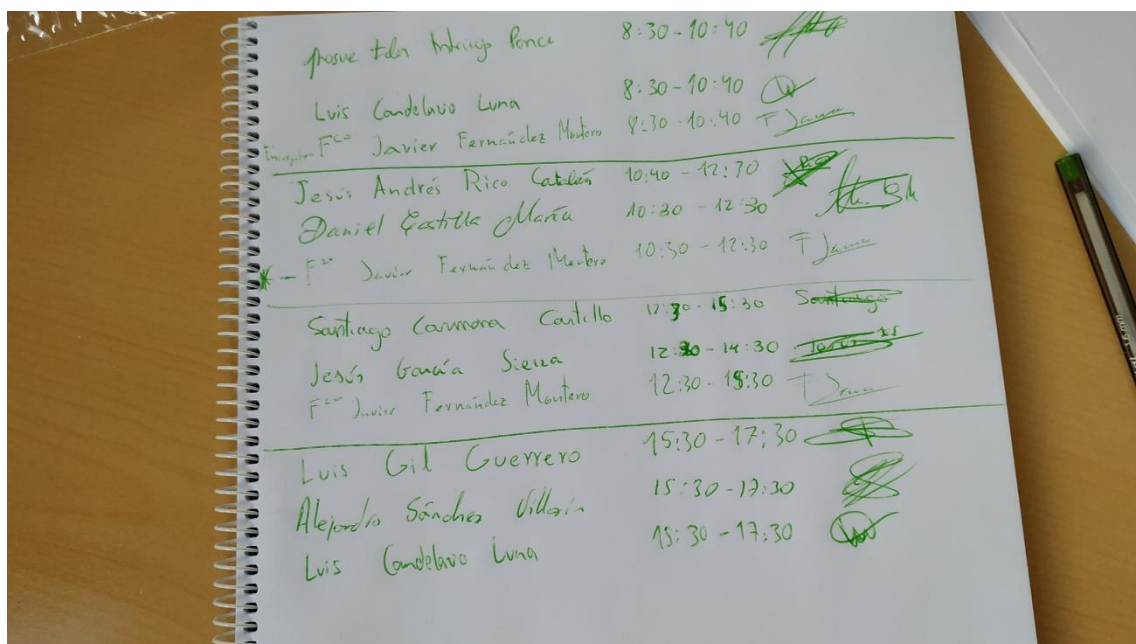 Ponce 8:30-10:40
Luis Candelario Luna 8:30-10:40
Fco Javier Fernández Montero 8:30-10:40 F Javier
Jesús Andrés Rico Catalán 10:40-12:30
Daniel Castilla María 10:30-12:30
* - Fco Javier Fernández Montero 10:30-12:30 F Javier
Santiago Carmona Castillo 12:30-15:30 Santiago
Jesús García Sierra 12:30-14:30 Jesús
Fco Javier Fernández Montero 12:30-15:30 F Javier
Luis Gil Guerrero 15:30-17:30
Alejandro Sánchez Villarín 15:30-17:30
Luis Candelario Luna 15:30-17:30